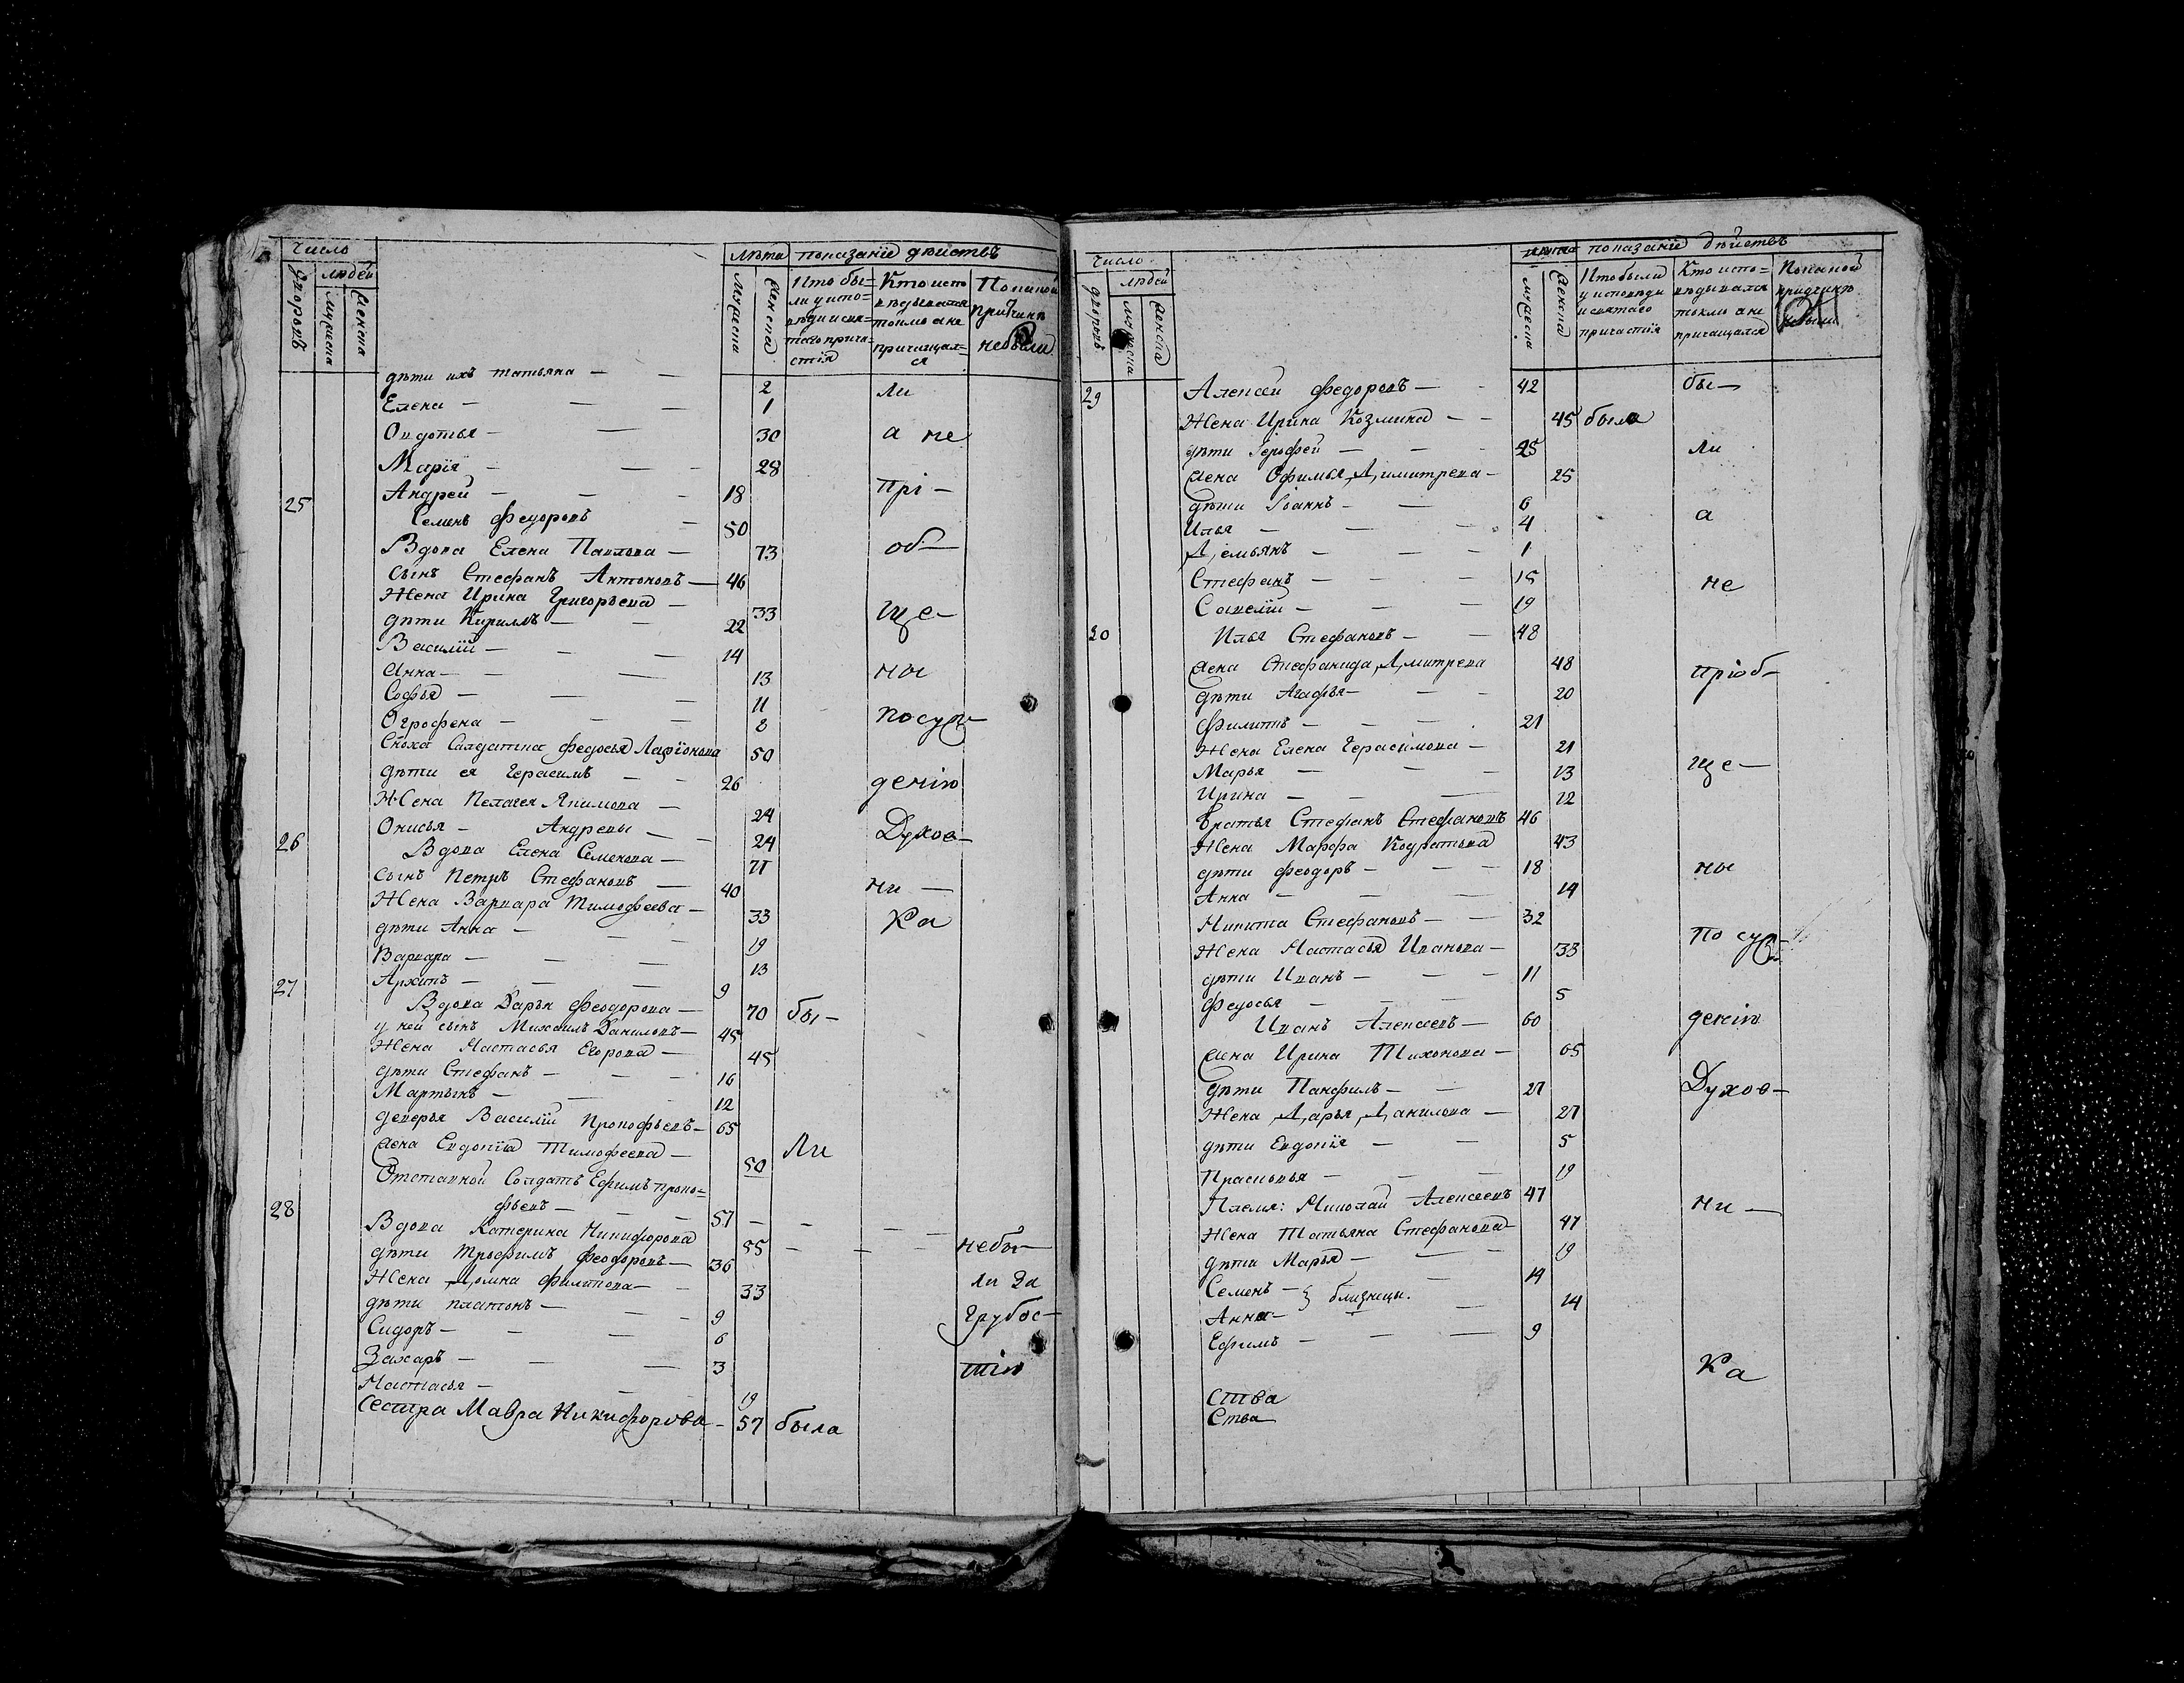 число
людей
дворовъ
мужеска
женска
лѣта
показанїе дѣйствъ
мужеска
женска
Кто бы=
ли у испо=
вѣди и свя=
таго прича=
стїя
Кто испо
вѣдывался
токмо а не
причащал=
ся
По какой
причинѣ
небыли
дѣти ихъ татьяна — — 2 ли
Елена — — — 1
Овдотья — — 30 а не
Марїя — — — 28
Андрей — — — 18 прі —
25 Семенъ Федоровъ — 50
Вдова Елена Павлова — 73 об —
Сынъ Стефанъ Антоновъ — 46
Жена Ирина Григорьева — 33 ще —
дѣти Кириллъ — — 22
Василїй — — — 14
Анна — — — 13 ны
Софья — — — 11
Огрофена — — — 8 посуж —
Сноха Салдатка Федосья Лафїонова 50
дѣти ея Герасимъ — — 26 денїю
Жена Пелагея Якимова — 24
Онисья — Андревы — — 24 Духов —
26 Вдова Елена Семенова — 71
Сынъ Петръ Стефановъ — 40 ни —
Жена Варвара Тимофеева — 33 ка
дѣти Анна — — — 19
Варвара — — — 13
Архипъ — — — 9
27 Вдова Дарья Феодорова — 70 бы —
у ней сынъ Михаилъ Даниловъ — 45
Жена Настасья Егорова — 45
дѣти Стефанъ — — — 16
Мартынъ — — — 12
деверья Василїй Прокофьевъ — 65
жена Евдокїя Тимофеева — 50 ли
Отставной Солдатъ Ефимъ проко=
фьевъ — — — 57 — — —
28 Вдова Катерина Никифорова 55 — — — небы —
дѣти Трофимъ Феодоровъ — 36
Жена Домна Филипова — — 33 ли за
дѣти платонъ — — — 9 грубос —
Сидоръ — — — 6
Захаръ — — — 3 тїю
Настасья — — — 19
Сестра Мавра Никифорова — 57 была
число
людей
дворовъ
мужеска
женска
лѣта
показанїе дѣйствъ
мужеска
женска
Кто были
у исповѣди
и святаго
причастїя
Кто испо=
вѣдывался
токмо а не
причащался
По какой
причинѣ
небыли
29 Алексей Федоровъ — — 42 бы —
Жена Ирина Козмина — — 45 была
дѣти Герофей — — — 25 ли
жена Офимья Димитрева — 25
дѣти Іоаннъ — — 6
Илья — — — 4 а
Демьянъ — — — 1
Стефанъ — — — 15 не
Савелїй — — — 19
30 Илья Стефановъ — — 48
жена Стефанида Дмитрева 48 пріоб —
дѣти Агафья — — — 20
Филипъ — — — 21
Жена Елена Герасимова — 21
Марья — — — 13 ще —
Ирина — — — 12
Братья Стефанъ Стефановъ 46
Жена Марфа Кодратова 43
дѣти Феодоръ — — — 18 ны
Анна — — — 14
Никита Стефановъ — — 32
Жена Настасья Иванова — 33 по суж —
дѣти Иванъ — — — 11
Федосья — — — 5
Иванъ Алексеевъ — 60 денїю
жена Ирина Тихонова — 65
дѣти Панфилъ — — 27 Духов —
Жена Дарья Данилова — 27
дѣти Евдокїя — — 5
Прасковья — — — 19
Племя: Николай Алексеевъ 47 ни —
Жена Татьяна Стефанова — 47
дѣти Марья — — — 19
Семенъ — — 14
близнецы.
Анна — — — 14
Ефимъ — — — 9
ка
ства
ства